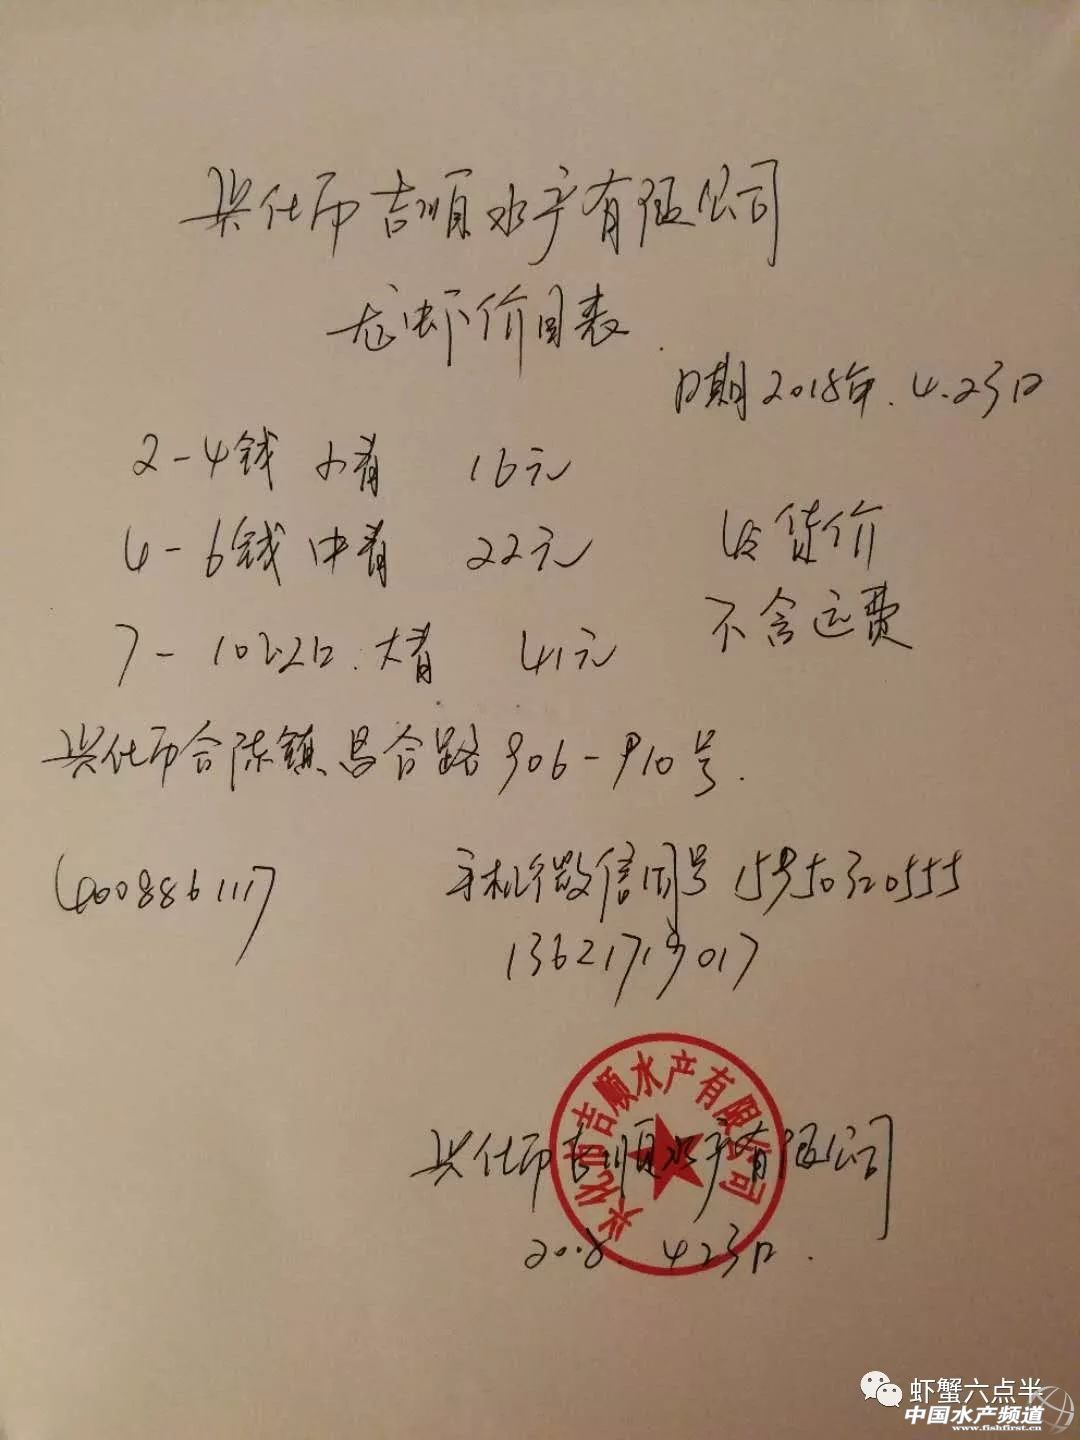 兴化市吉顺水产有限公司
龙虾价目表
日期2018年.4.23日
2-4钱 小青 16元
4-6钱 中青 22元 收货价
7-10以上 大青 41元 不含运费
兴化市合陈镇昌合路906-910号.
4008861117 手机微信同号 15950320555
兴化市吉顺水产有限公司
兴化市吉顺水产有限公司
2018. 4 23日.
虾蟹六点半
中国水产频道
www.fishfirst.cn